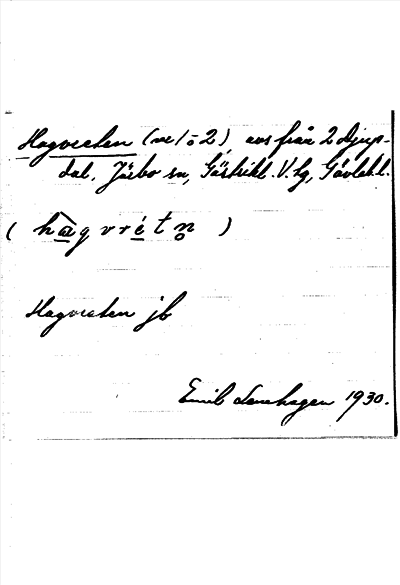 Hagvreten (ve/ō 2), avs från 2 Djup-
dal, Järbo sn, Gästrikl. V. tg, Gävlebl.
( hagvrétn )
Hagvreten jb
Emil Lenhagen 1930.